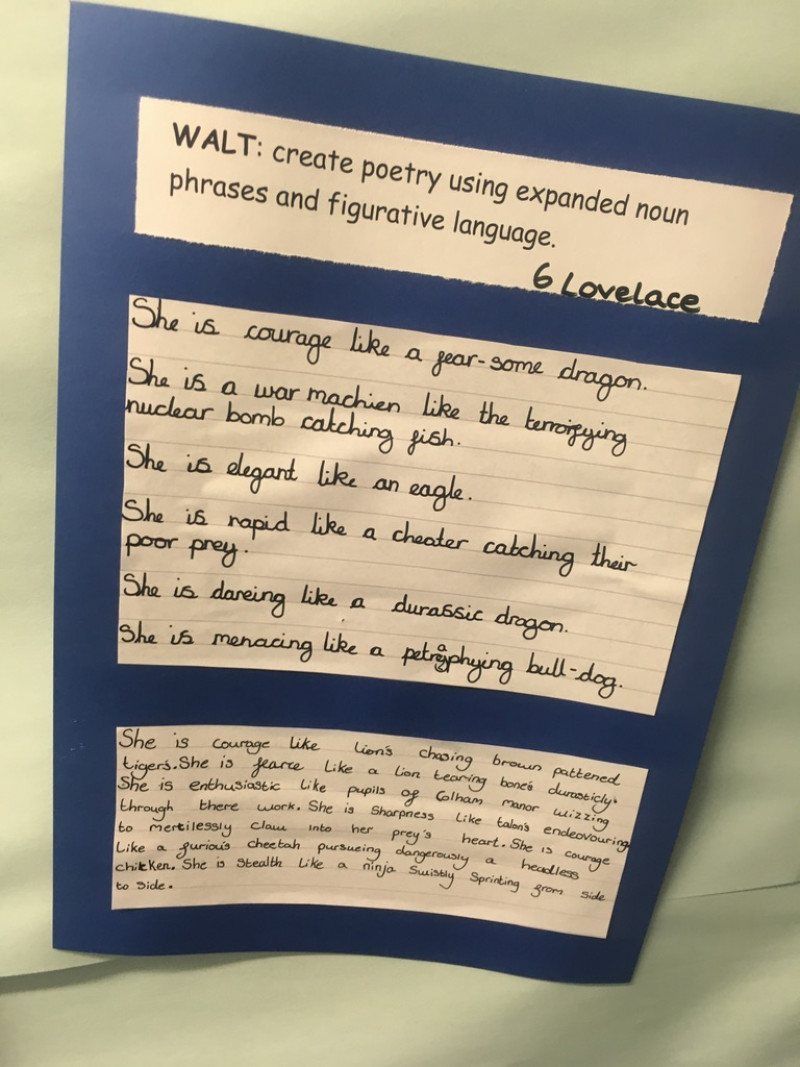 WALT: create poetry using expanded noun
phrases and figurative language.
6 Lovelace
She is courage like a fear-some dragon.
She is a war machien like the terroifying
nuclear bomb catching fish.
She is elegant like an eagle.
She is rapid like a cheater catching their
poor prey.
She is dareing like a durassic dragon.
She is menacing like a petraphying bull-dog.
She is courage like lion's chasing brown pattened
tigers. She is fearce like a lion tearing bones durasticly.
She is enthusiastic like pupils of Colham manor wizzing
through there work. She is sharpness like talons endeovouring
to mertilessly claw into her prey's heart. She is courage
like a furious cheetah pursueing dangerously a headless
chicken. She is stealth like a ninja swistly sprinting from side
to side.